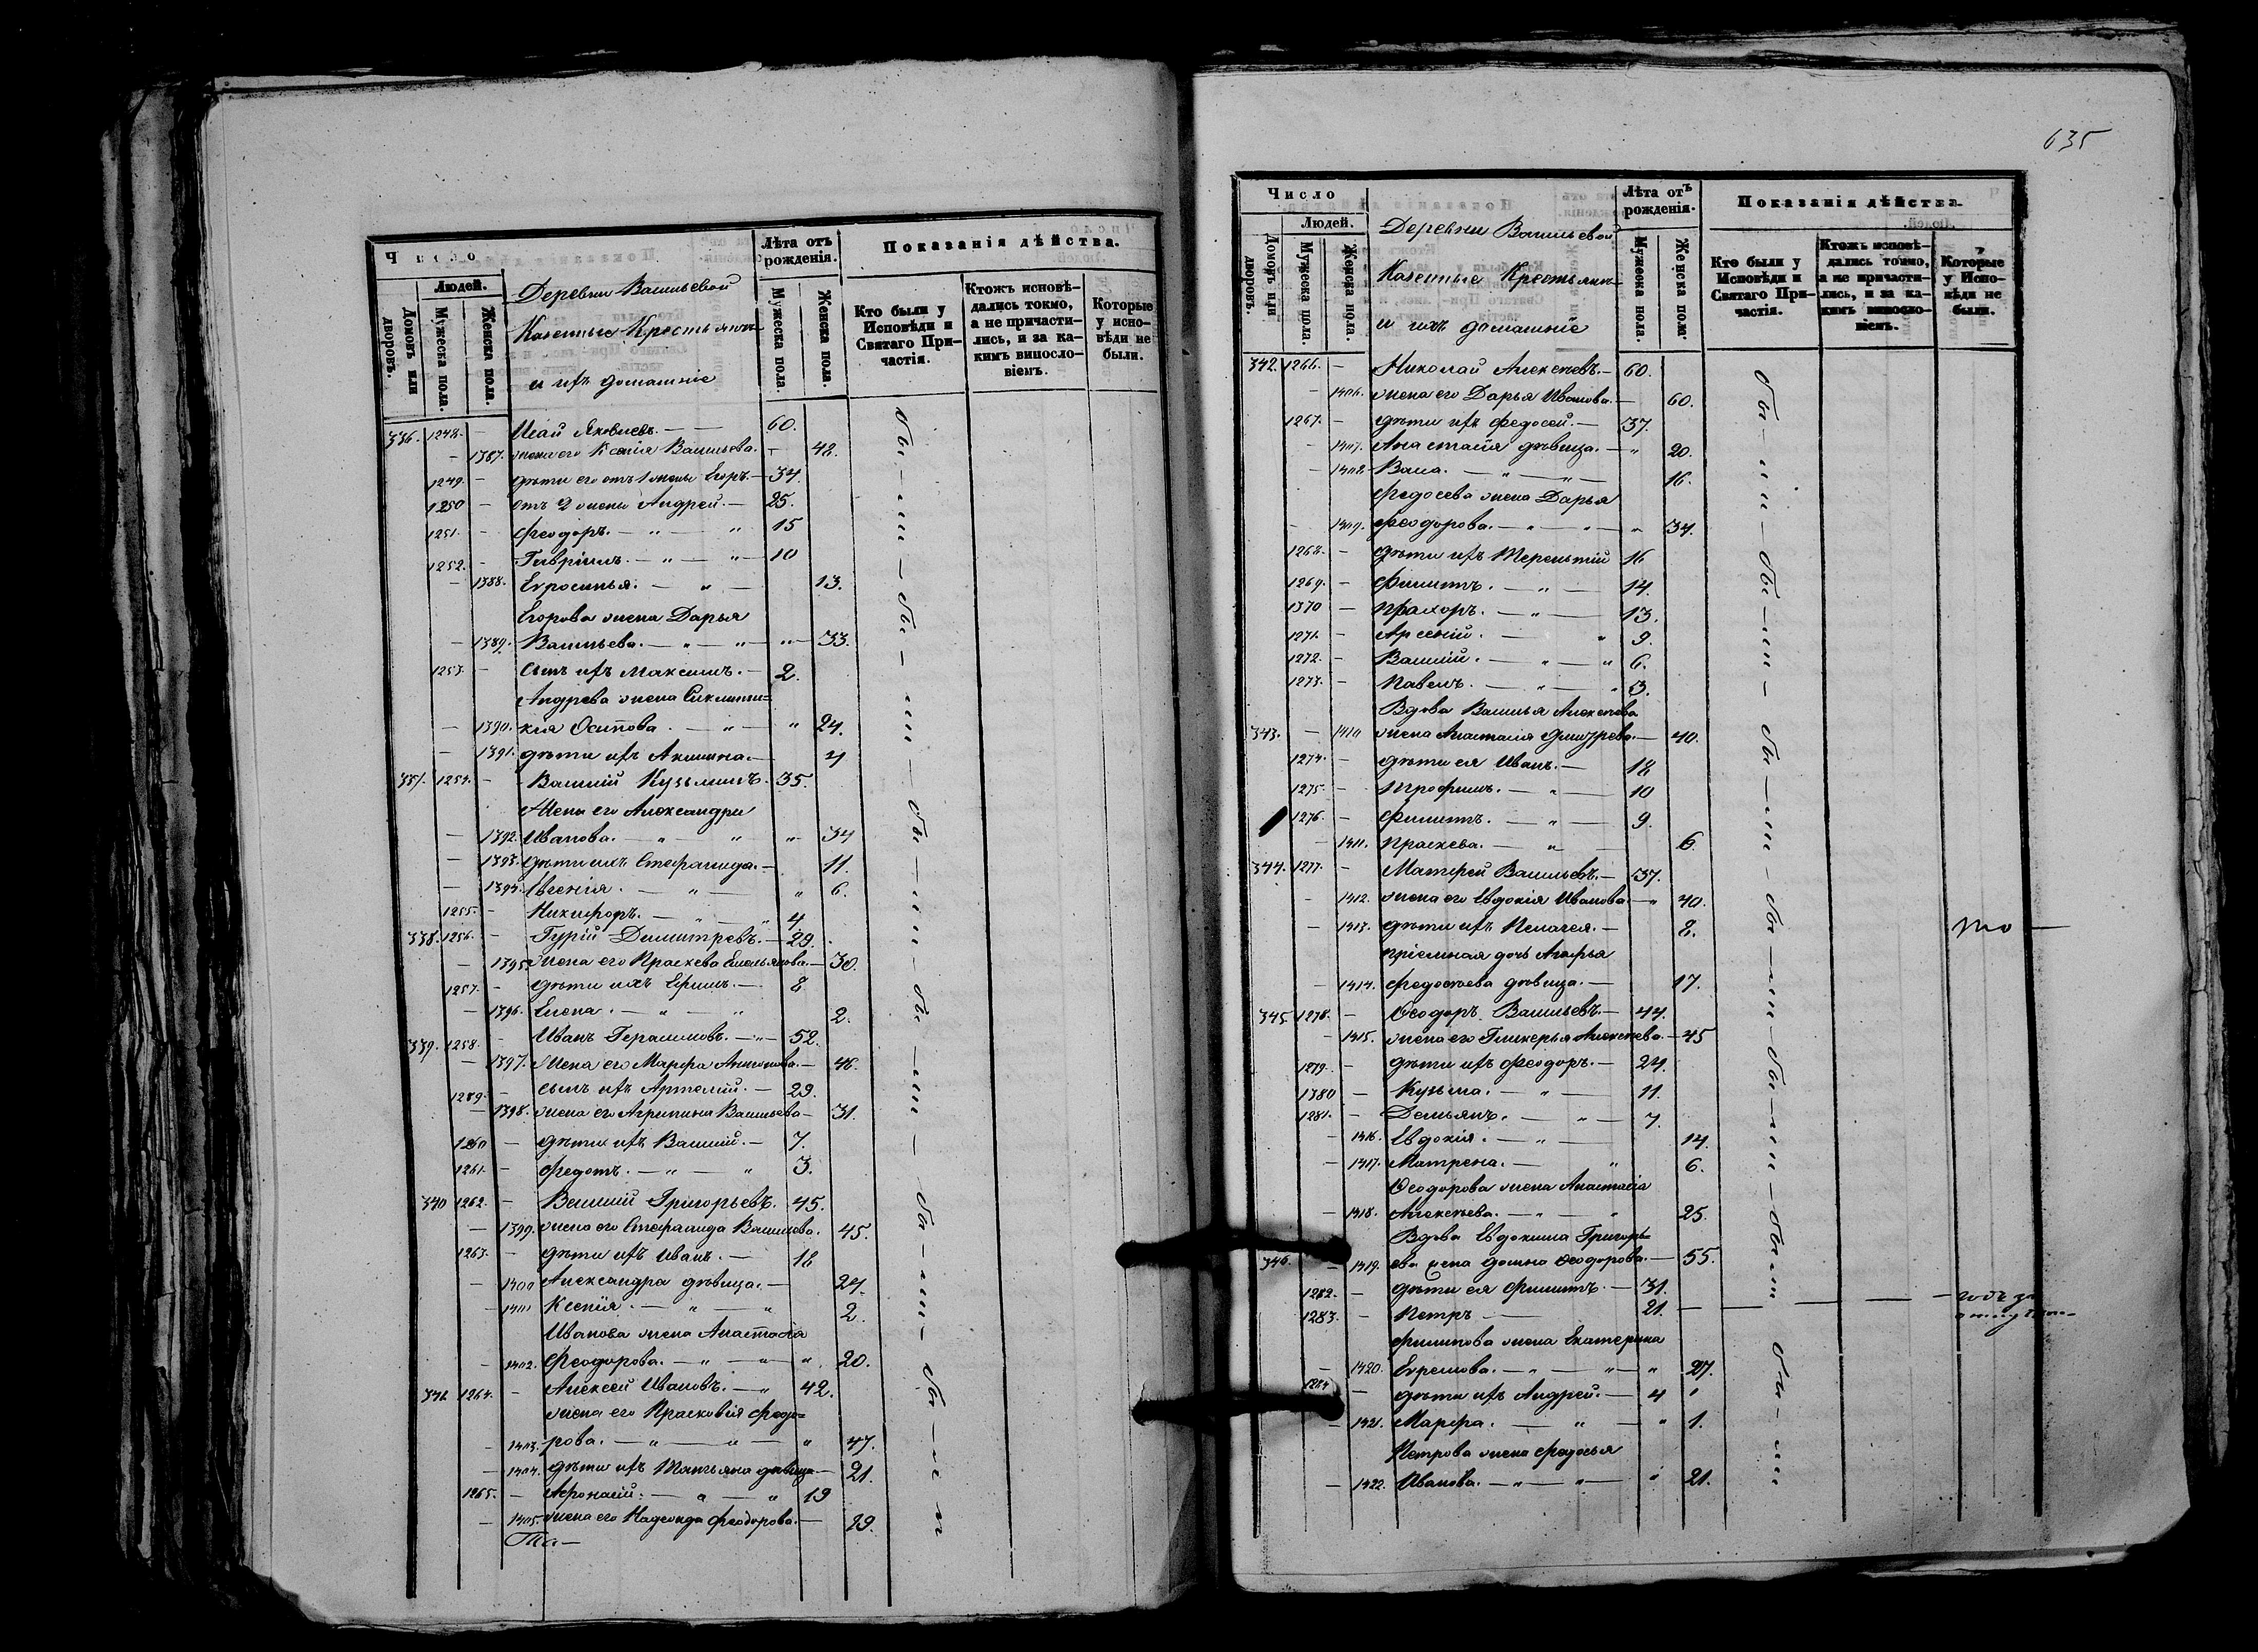 Число
Людей.
Домовъ или дворовъ.
Мужеска пола.
Женска пола.
Деревни Васильевой
Казенные Крестьяне
и ихъ домашніе
Лѣта отъ рожденія.
Мужеска пола.
Женска пола.
Показанія дѣйства.
Кто были у Исповѣди и Святаго Причастія.
Ктожъ исповѣдались токмо, а не причастились, и за какимъ винословіемъ.
Которые у исповѣди не были.
336. 1248. — Исай Яковлевъ. — 60.
— 1387. жена его Ксенія Васильева. — 48.
1249. — дѣти его отъ 1 жены Егоръ. — 34.
1250 — отъ 2 жены Андрей. — 25.
1251. — Феодоръ. — " — " 15
1252. — Гавріилъ. — " — " — 10
— 1388. Евросинья. — " — 13.
Егорова жена Дарья
— 1389. Васильева. — " — " — " — 33.
1253. — Сынъ ихъ Максимъ. — 2.
Андрева жена Сиклити=
— 1390. кія Осипова. — " — " 24.
— 1391. дѣти ихъ Акилина. — 4
337. 1254. — Василій Кузьминъ. 35.
Жена его Александра
— 1392. Иванова. — " — " " 34
— 1393. дѣти ихъ Стефанида. — 11.
— 1394. Евгенія. — " — " 6.
1255. — Никифоръ. — " — " 4
338. 1256. — Гурій Димитревъ. — 29.
— 1395. Жена его Праскева Емельянова. — 30.
1257. — дѣти ихъ Ефимъ. — 8
— 1396. Елена. — " — " 2.
339. 1258. — Иванъ Герасимовъ. — " — 52.
— 1397. Жена его Марфа Антонова. — 46.
1259. — сынъ ихъ Артемій. — 29.
— 1398. жена его Агрипина Васильева — 31.
1260 — дѣти ихъ Василій. — 7.
1261. — Федотъ. — " — " 3.
340 1262. — Василій Григорьевъ. 45.
— 1399. жена его Стефанида Василова. 45.
1263. — дѣти ихъ Иванъ. — 18
— 1400 Александра дѣвица. — 24.
— 1401 Ксенія. — " — " 2.
Иванова жена Анастасія
— 1402. Феодорова. — " — " — " 20.
341. 1264. — Алексей Ивановъ. — " 42.
жена его Прасковія Федо=
— 1403. рова. — " — " — " 47.
— 1404. дѣти ихъ Татьяна дѣвица — 21.
1265. — Афонасій. — " — " 19
— 1405. жена его Надежда Феодорова. — 29.
бы — ли — бы — ли — бы — ли — бы — ли — бы — ли — бы — ли
635
Число
Людей.
Домовъ или дворовъ.
Мужеска пола.
Женска пола.
Деревни Васильевой
Казенные Крестьяне
и ихъ домашніе
Лѣта отъ рожденія.
Мужеска пола.
Женска пола.
Показанія дѣйства.
Кто были у Исповѣди и Святаго Причастія.
Ктожъ исповѣдались токмо, а не причастились, и за какимъ винословіемъ.
Которые у Исповѣди не были.
342. 1266. — Николай Алексѣевъ. — 60.
— 1406. жена его Дарья Иванова. — 60.
1267. — дѣти ихъ Федосей. — 37.
— 1407. Анастасія дѣвица. — " 20.
— 1408 Васа. — " — " — 16.
Федосева жена Дарья
— 1409. Феодорова. — " — " — " 34.
1268. — дѣти ихъ Терентій 16
1269. — Филиппъ. — " — 14.
1370 — Прохоръ. — " — 13.
1271. — Арсеній. — " 9.
1272. — Василій. — " — " 6.
1273. — Павелъ. — " — " 3.
Вдова Василья Алексѣева
343. — 1410 жена Анастасія Димитрева. — 40.
1274. — дѣти ея Иванъ. — 18
1275. — Трофимъ. — " — 10
1276. — Филиппъ. — " — 9.
— 1411. Праскева. — " — 6
344. 1277. — Матфей Васильевъ. — 37.
— 1412. жена его Евдокія Иванова. — " 40.
— 1413. дѣти ихъ Пелагея. — 8.
пріемная дочь Агафья
— 1414. Федосѣева дѣвица. — 17.
345 1278. — Ѳеодоръ Васильевъ. — 44.
— 1415. жена его Гликерья Алексѣева. — 45
1279. — дѣти ихъ Феодоръ. — 24.
1380 — Кузьма. — " — 11.
1281. — Демьянъ. — " — 7.
— 1416. Евдокія. — " — 14.
— 1417. Матрена. — " 6.
Ѳеодорова жена Анастасія
— 1418. Алексѣева. — " — " 25.
Вдова Евдокима Григорь=
346. — 1419. ева жена Домна Ѳеодорова. — 55.
1282. — дѣти ея Филиппъ. — 31.
1283. — Петръ — 21.
Филипова жена Екатерина
— 1420. Ефремова. — " — " — " 27.
1284 — дѣти ихъ Андрей. — 4 "
— 1421. Марфа. — " — " 1.
Петрова жена Федосья
— 1422. Иванова. — " — " — " 21.
бы — ли — бы — ли — бы — ли — бы — ли — бы — ли — были
бы — ли